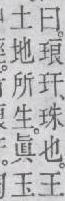 曰。琅玕。珠也。王
土地所生。眞玉